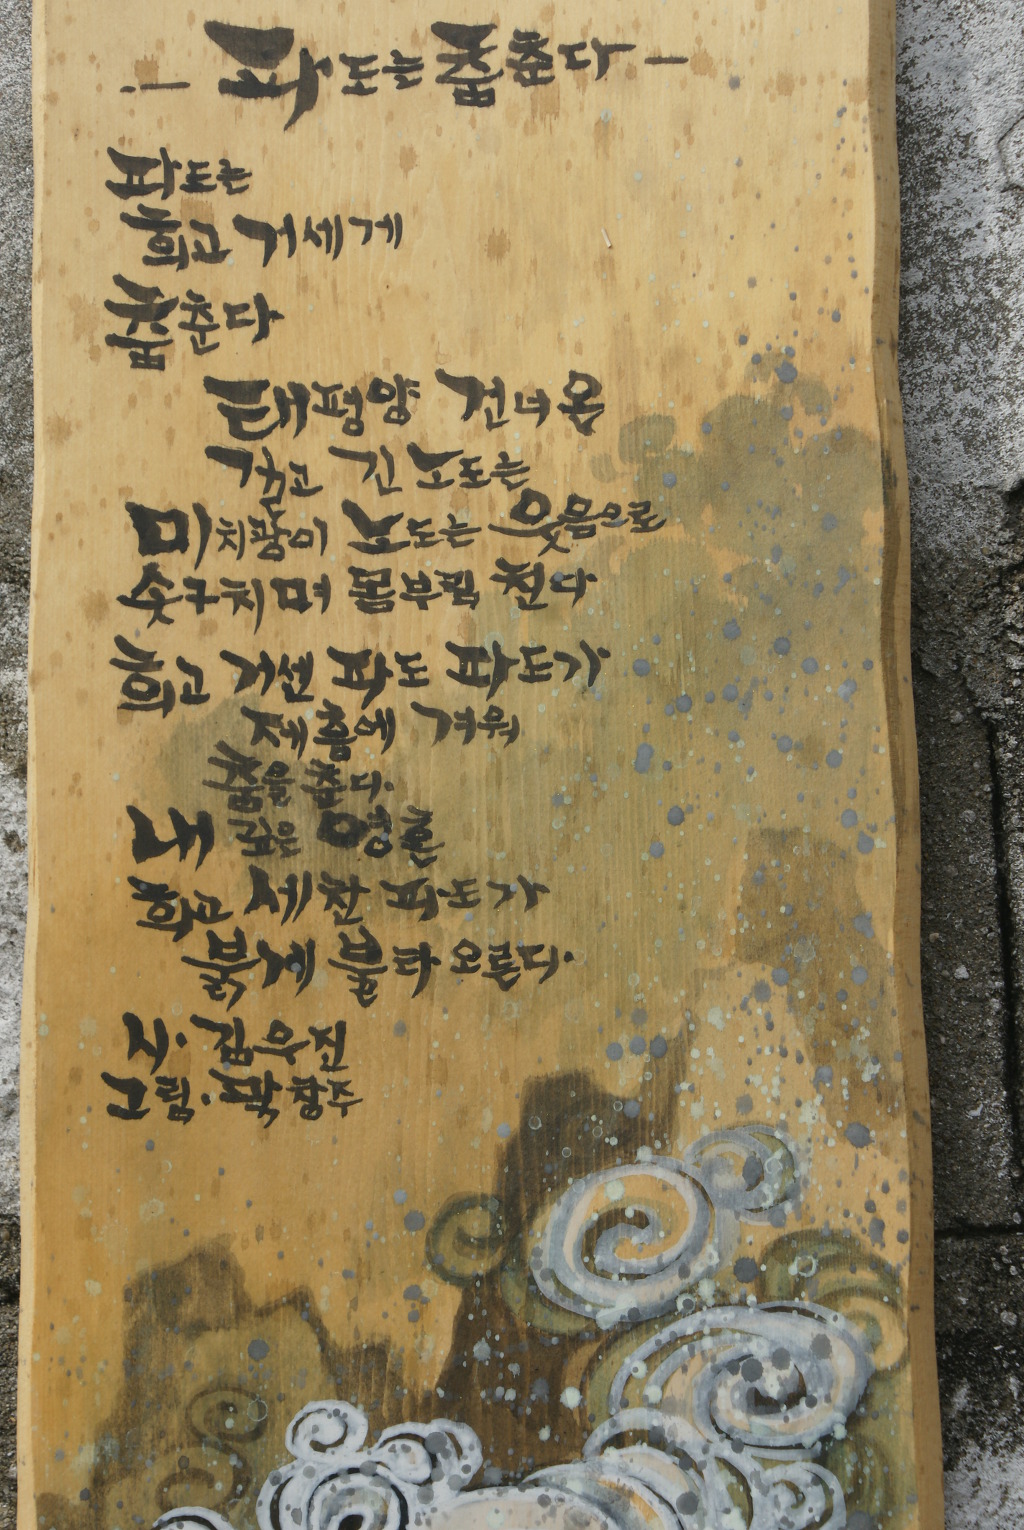 - 파도는 춤춘다 -
파도는
희고 거세게
춤춘다
태평양 건너온
검고 긴 노도는
미치광이 노도는 웃음으로
솟구치며 몸부림 친다
희고 거센 파도 파도가
제 흥에 겨워
춤을 춘다.
내 깊은 영혼
희고 세찬 파도가
붉게 불타 오른다.
시. 김우진
그림. 박창주